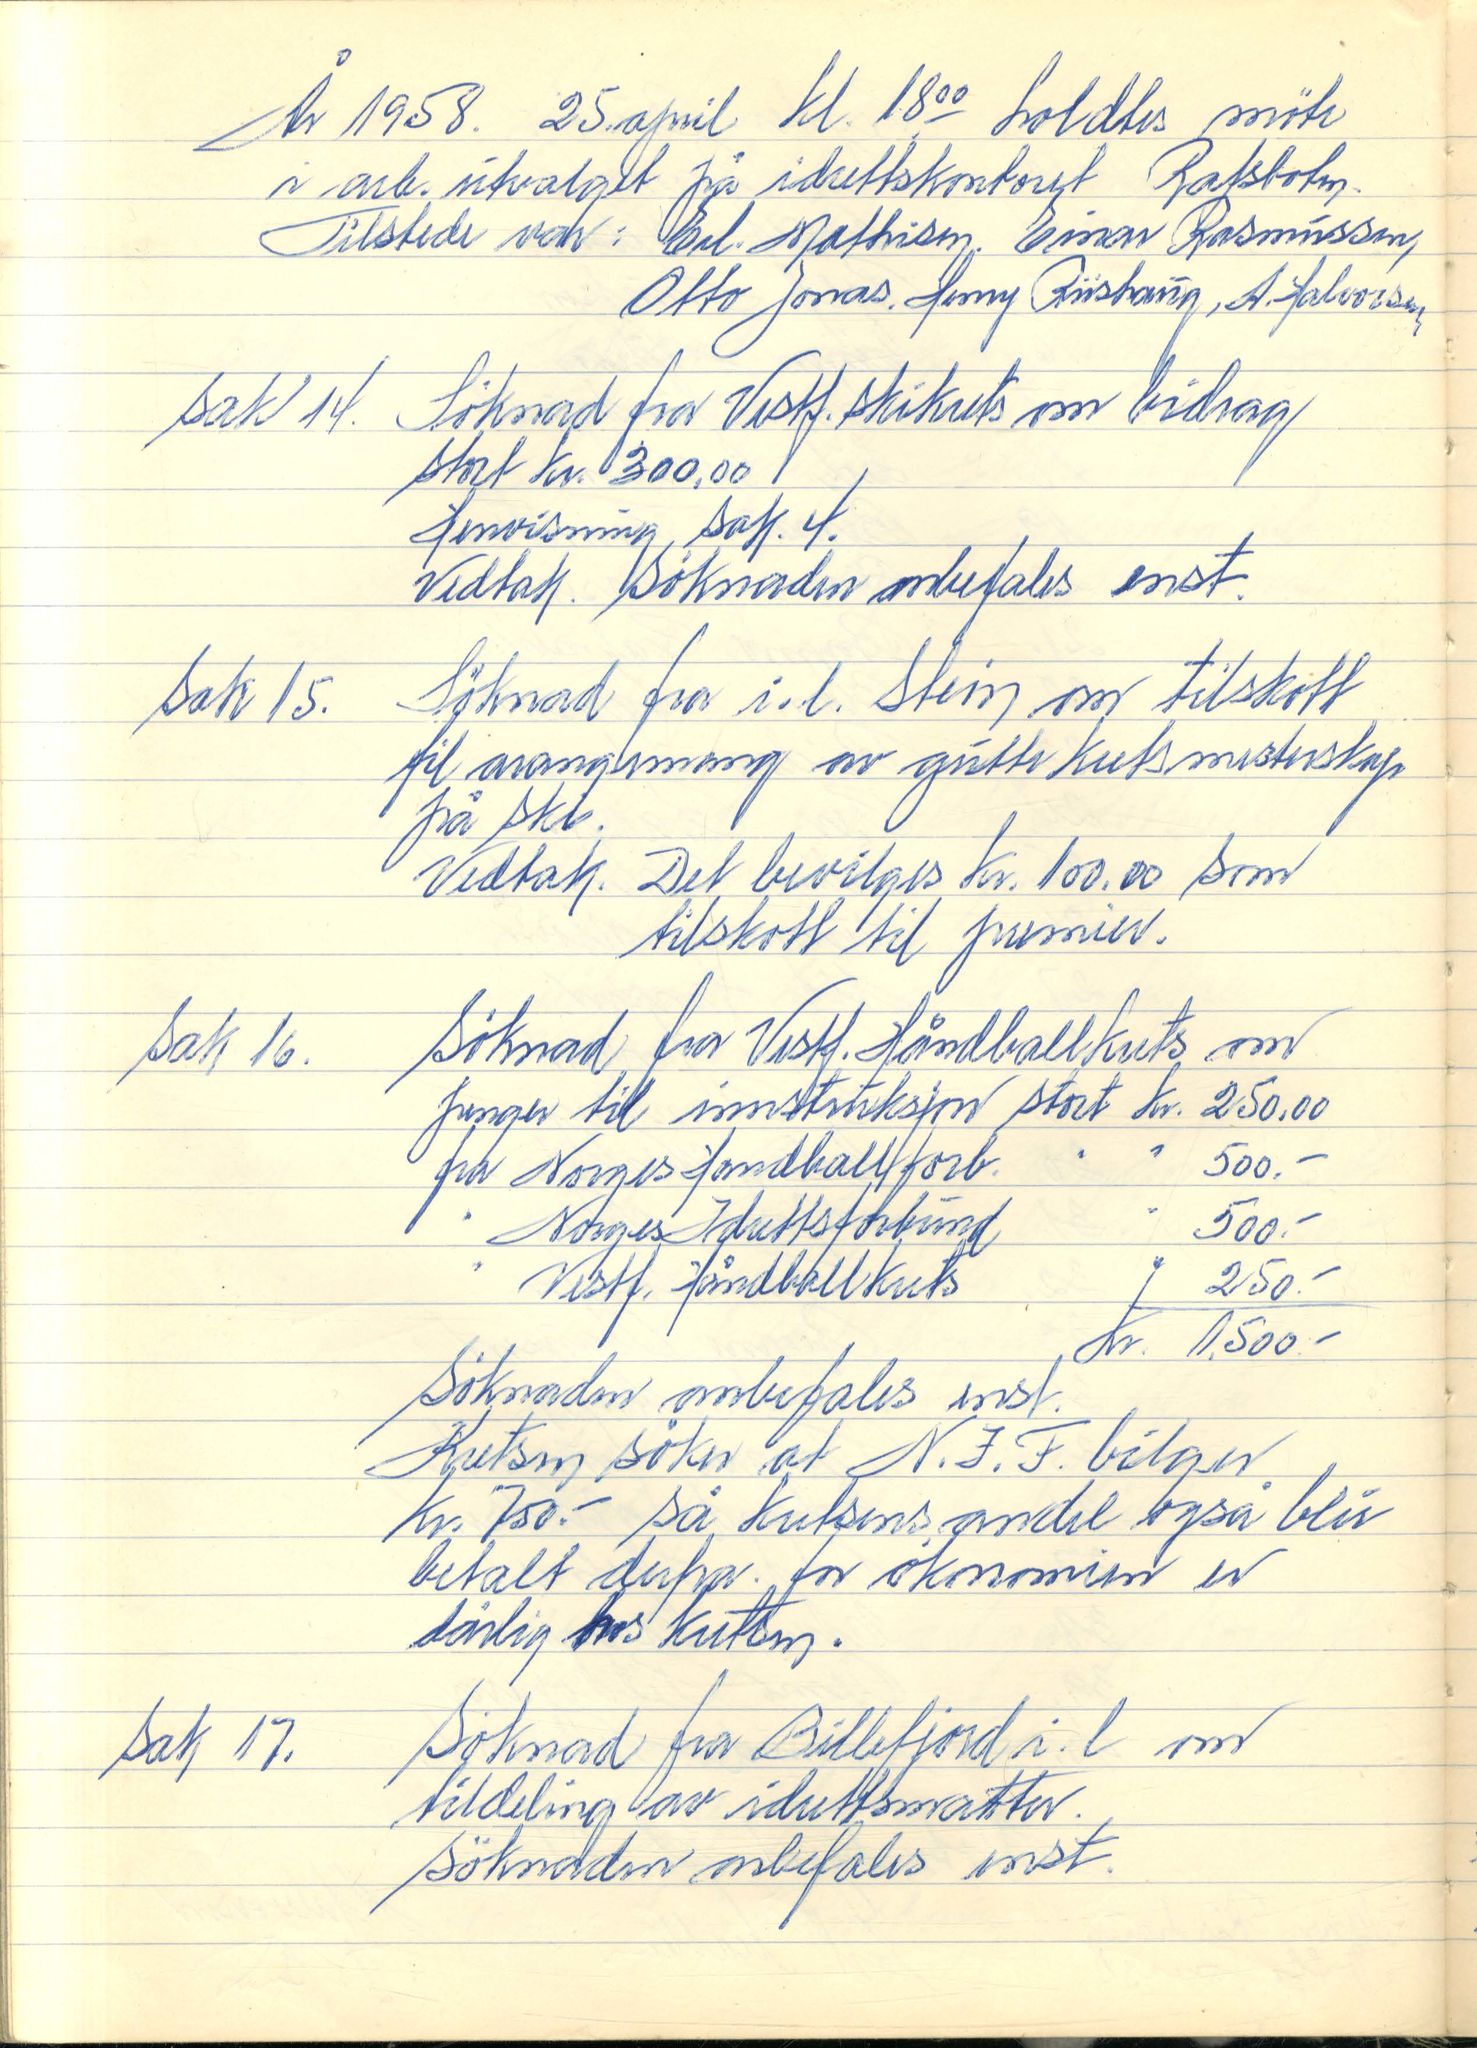 År 1958. 25. april kl. 18⁰⁰ holdtes möte
i arb. utvalget på idrettskontoret Rafsbotn.
Tilstede var: Erl. Mathisen. Einar Rasmussen,
Otto Jonas. Henry Riishaug, A. Halvorsen
Sak 14. Söknad fra Vestf. skikrets om bidrag
stort kr. 300,00
Henvisning sak. 4.
Vedtak. Söknaden anbefales enst.
Sak 15. Söknad fra i.l. Stein om tilskott
til arangemang av gutte kretsmesterskap
på ski.
Vedtak. Det bevilges kr. 100.00 som
tilskott til premier.
Sak 16. Söknad fra Vestf. Håndballkrets om
penger til innstruksjon stort kr. 250.00
fra Norges Handballforb. " " 500.-
" Norges Idrettsforbund " 500.-
" Vestf. Håndballkrets " 250.-
Kr. 1.500.-
Söknaden anbefales enst.
Kretsen söker at N.I.F. bilger
kr. 750.- så kretsens andel også blir
betalt derfra. for ökonomien er
dårlig hos kretsen.
Sak 17. Söknad fra Billefjord i.l om
tildeling av idrettsmatter.
Söknaden anbefales enst.